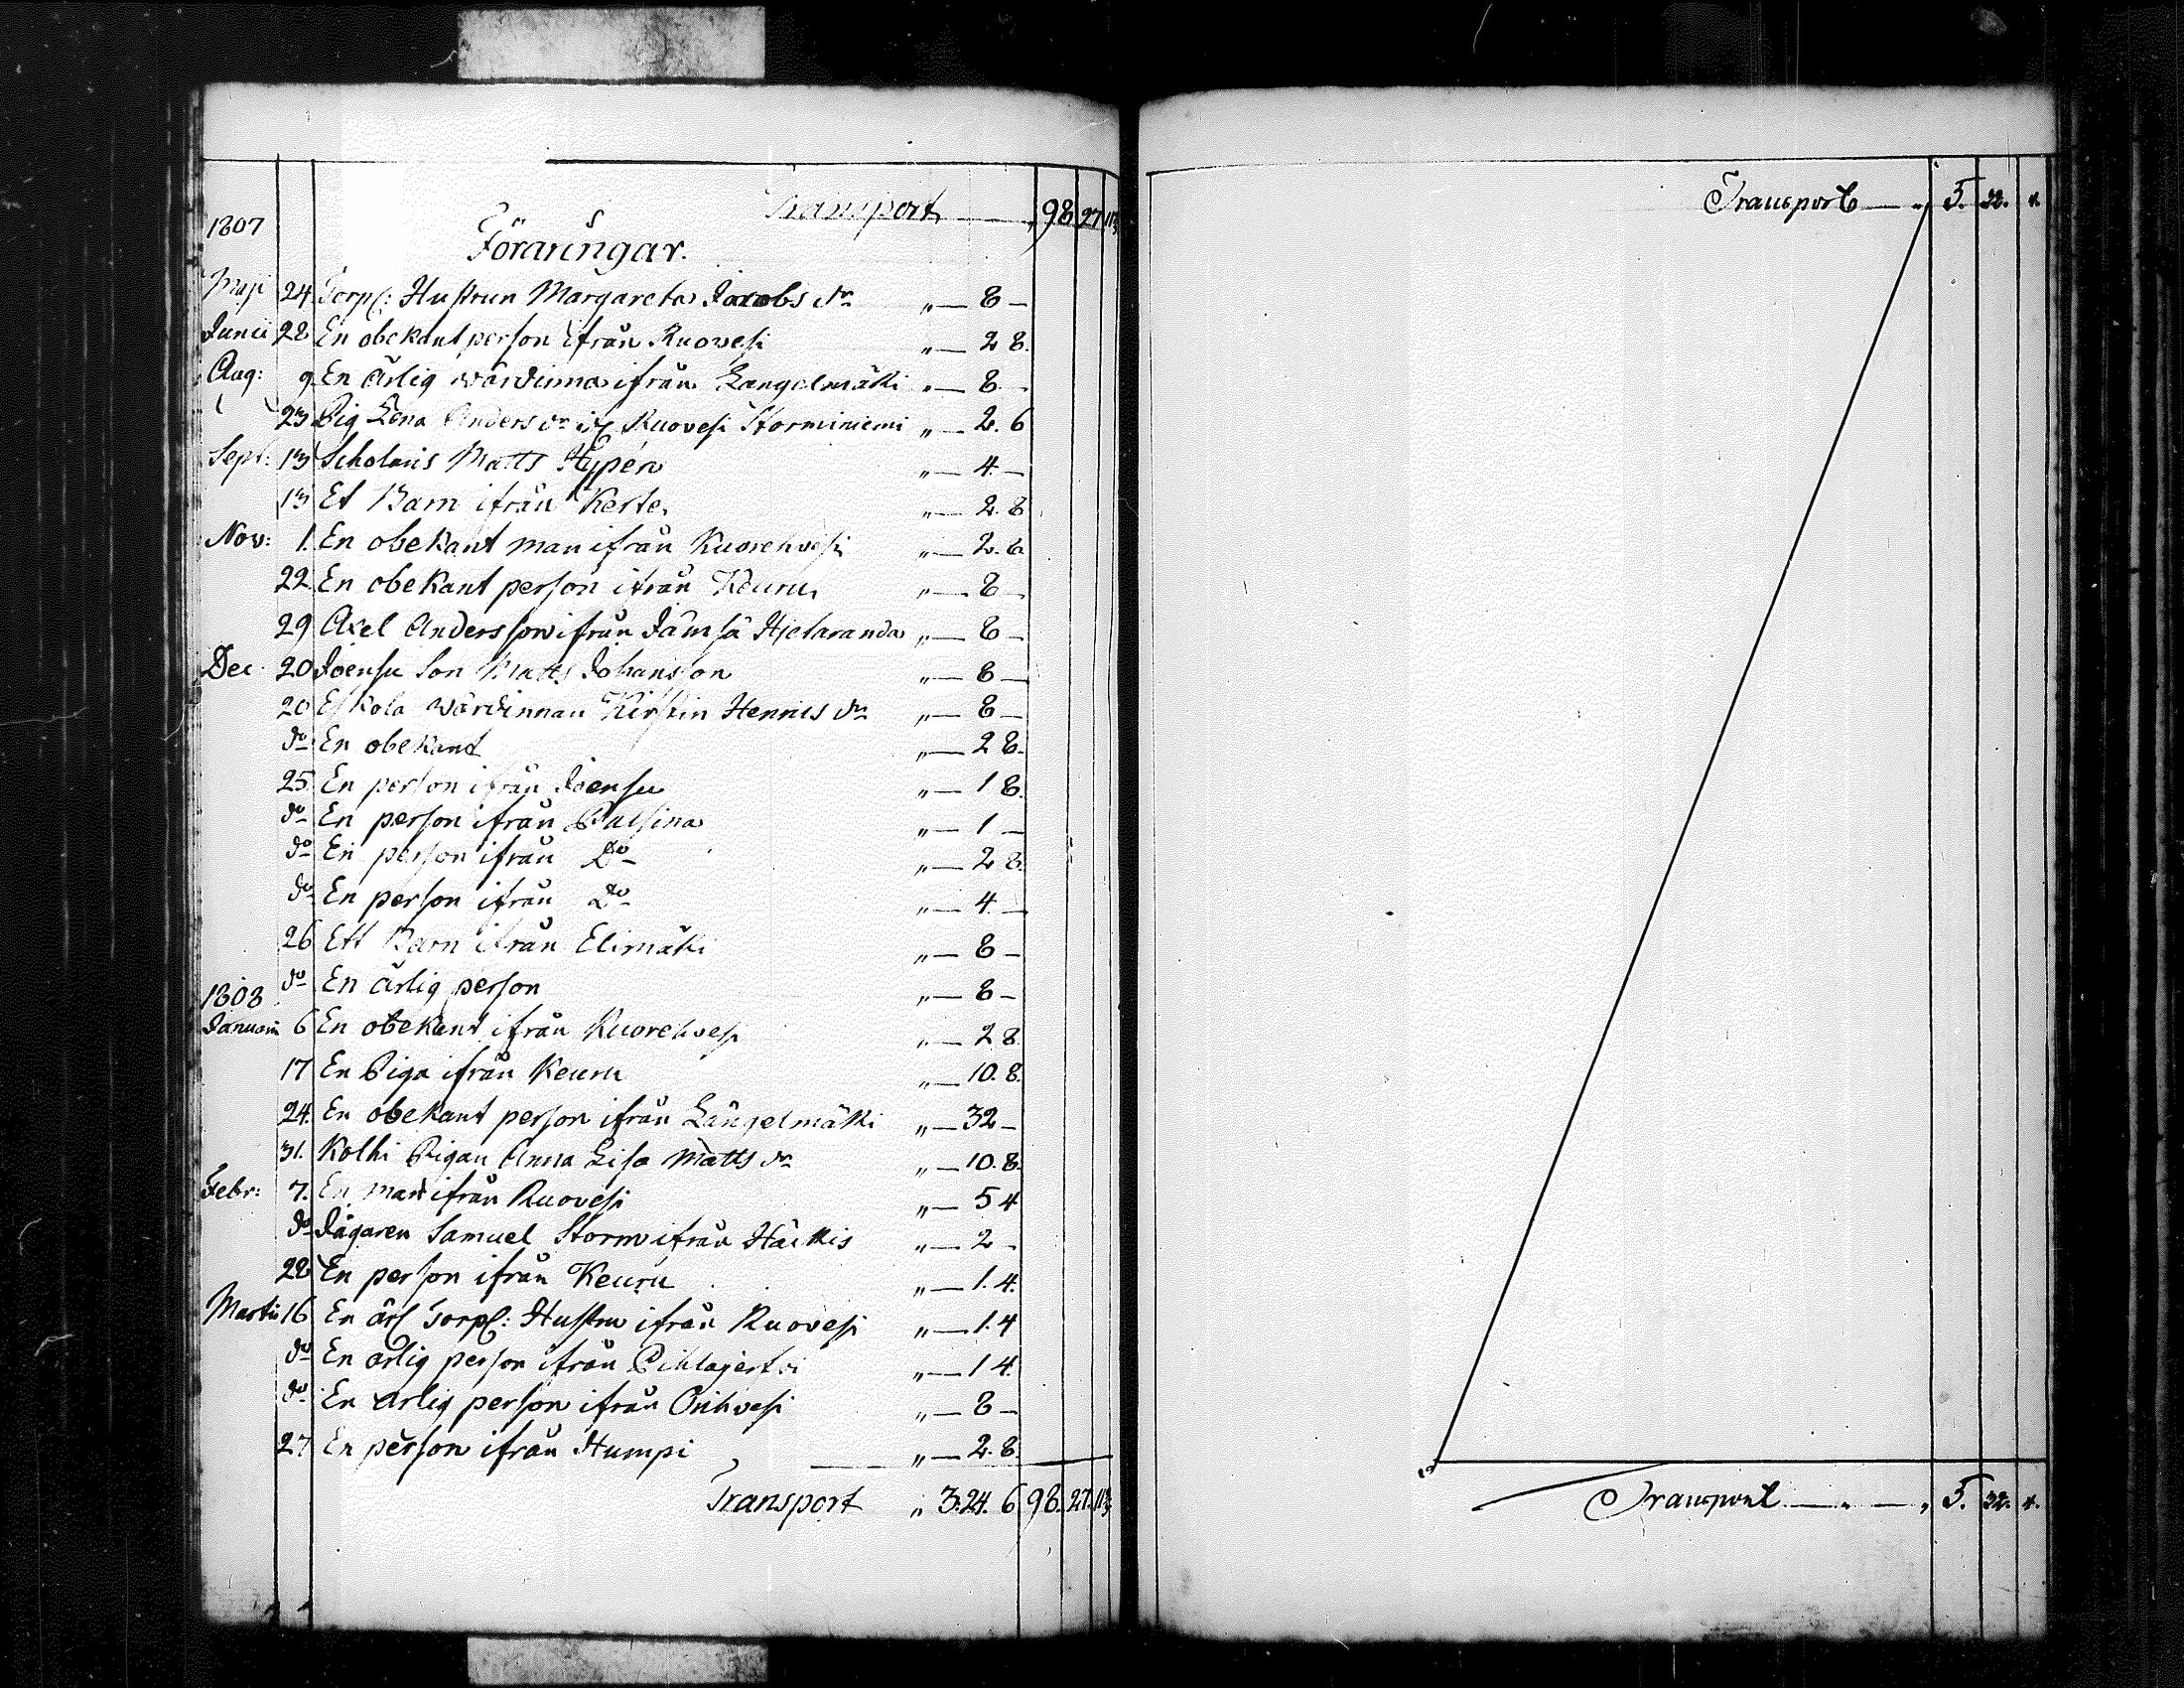 Transport — „ 98. 27. 11⅓
1807
Föräringar.
Maji 24. Torp: Hustrun Margareta Jacobs dr „— 8 —
Junii 28. En obekant person ifrån Ruovesi „— 2 8.
Aug: 9. En ärlig wärdinna ifrån Längelmäki „— 8. —
23 Pig Lena Anders dr if Ruovesi Storminiemi „— 2. 6
Sept: 13 Scholaris Matts Hypén „— 4. —
13 Et Barn ifrån Kerte „— 2. 8
Nov: 1. En obekant man ifrån Kuorehvesi „— 2. 8
22. En obekant person ifrån Keuru „— 8 —
29 Axel Andersson ifrån Jämsä Hjetaranda „— 8 —
Dec. 20 Joensu Son Matts Johansson „— 8 —
20 Eskola wärdinnan Kirstin Henrics dr „— 8 —
do En obekant „— 2 8.
25. En person ifrån Joensu „— 1 8.
do En person ifrån Pulsina „— 1 —
do En person ifrån Do „— 2 8.
do En person ifrån Do „— 4. —
26 Ett Barn ifrån Elimäki „— 8 —
do En ärlig person „— 8 —
1808
Januarii 6 En obekant ifrån Kuorehvesi „— 2 8.
17 En Piga ifrån Keuru „— 10. 8.
24. En obekant person ifrån Längelmäki „— 32 —
31. Kolhi Pigan Anna Lisa Matts dr „— 10. 8.
Febr: 7. En man ifrån Ruovesi „— 5 4
do Jägaren Samuel Storm ifrån Häkkis „— 2 —
28 En person ifrån Keuru „— 1. 4.
Martii 16 En ärl Torp: Hustru ifrån Ruovesi „— 1. 4
do En ärlig person ifrån Pihlajertvi „— 1 4.
do En ärlig person ifrån Orihvesi „— 8 —
27 En person ifrån Humpi „— 2. 8.
Transport „ 3. 24. 6 98. 27. 11⅓
Transport — „ 5. 32. 4.
Transport — „ — „ 5. 32. 4.